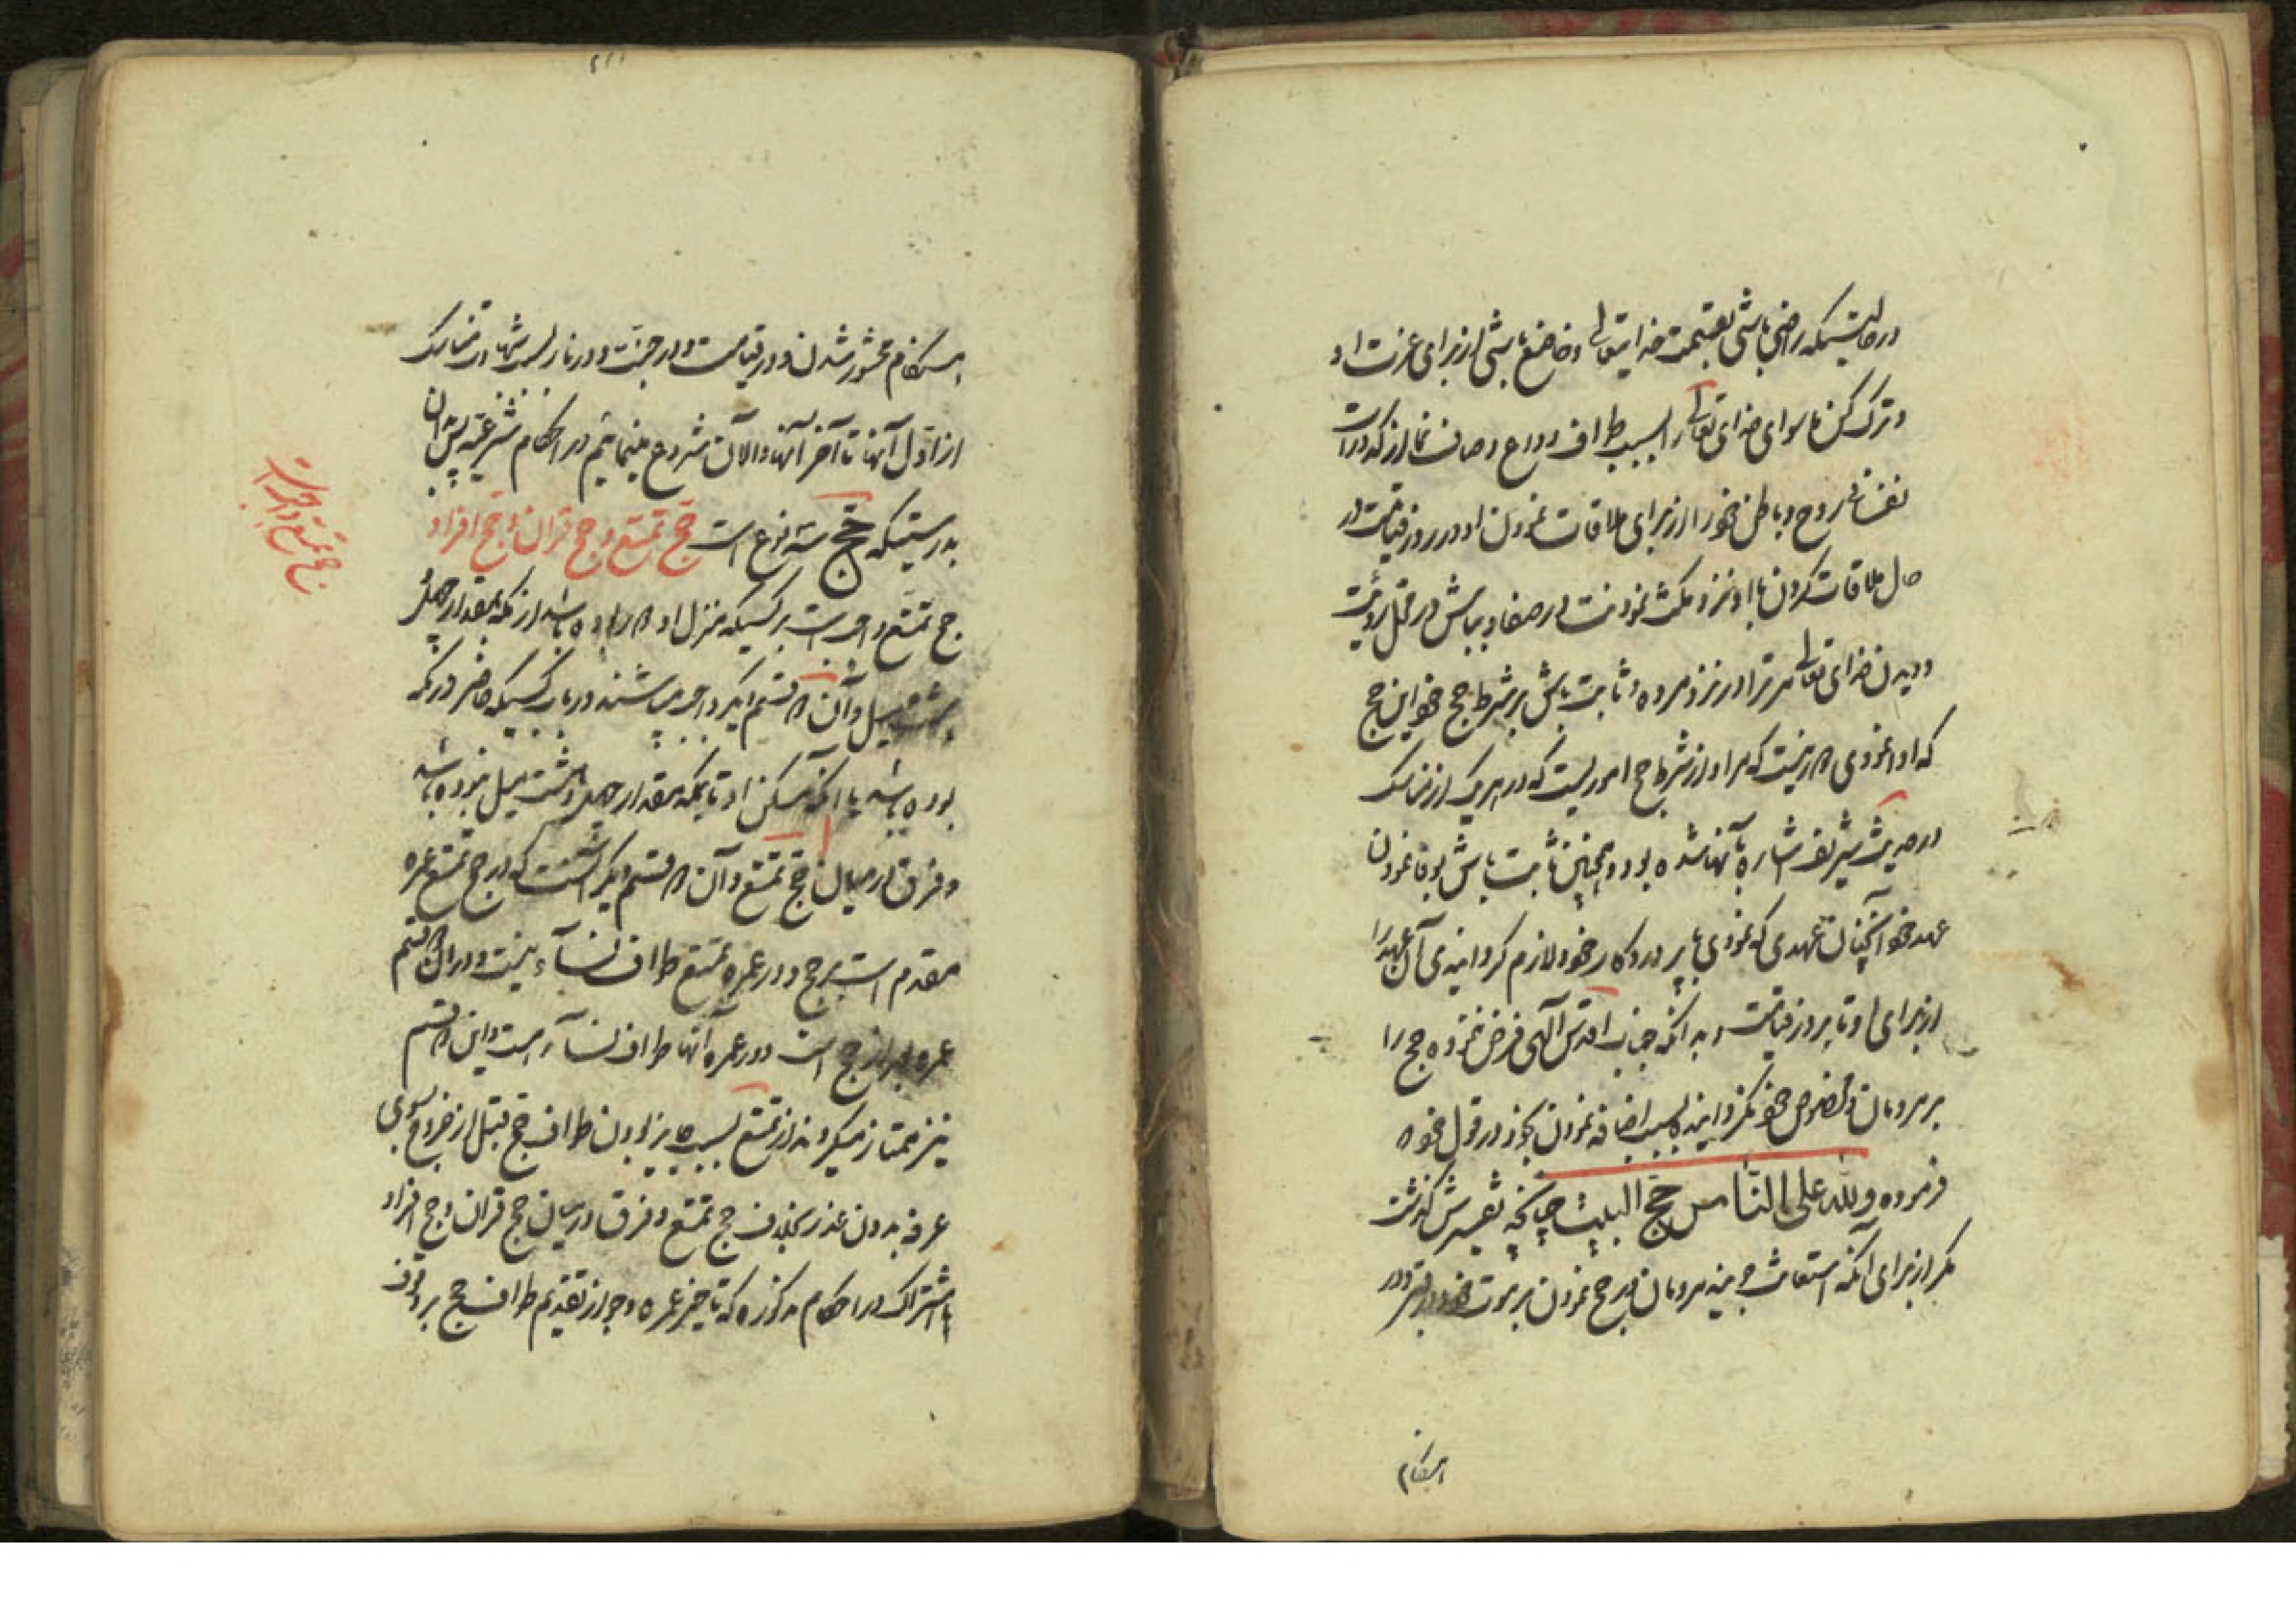 در حالتیکه راضی باشی بقسمت خدایتعالی و خاضع باشی از برای عزت او
و ترک کن ماسوای خدای تعالی را بسبب طواف وداع و صاف نما از کدورات
روح و باطن خود را از برای ملاقات نمودن او در روز قیامت در
حال ملاقات کردن با او نزد مکث نمودنت در صفا و بباش در محل رؤیت
و دیدن خدای تعالی مر ترا در نزد مروه و ثابت باش بر شرط حج خود این حج
که او نمودی که مراد از شرط حج اموریست که در هریک از مناسک
در حدیث شریف اشاره بآنها شده بود و همچنین ثابت باش بوفا نمودن
عهد خود آنچنان عهدی که نمودی با پروردگار خود و لازم گردانیدی آن عهد را
از برای او تا بروز قیامت بدانکه جناب اقدس آلهی فرض ننموده حج را
بر مردمان و مخصوص خود نگردانیده بسبب اضافه نمودن بخود در قول خود که
فرموده ولله علی الناس حج البیت چنانچه تفسیرش گذشت
مگر از برای آنکه استعانت جویند مردمان بر حج نمودن بر موت خود و در
هنگام
هنگام محشور شدن در قیامت و در جنت و در نار بسبب شهادت مناسک
از اول آنها تا آخر آنها و الآن شروع مینمائیم در احکام شرعیه پس
بدرستیکه حج سه نوع است حج تمتع و حج قران و حج افراد
حج تمتع واجب است
حج تمتع واجب است بر کسیکه منزل او دور بوده باشد از مکه بمقدار چهل
هشت میل و آن دو قسم دیگر واجب میباشند در باب کسیکه حاضر در مکه
بوده باشد یا آنکه مسکن او تا بمکه بمقدار چهل و هشت میل نبوده باشد
و فرق در میان حج تمتع و آن دو قسم دیگر آنست که در حج تمتع عمره
مقدم است بر حج و در عمره تمتع طواف نسآء نیست و در آن دو قسم
عمره بعد از حج است و در عمره آنها طواف نسآء است و این دو قسم
نیز ممتاز میگردند از تمتع بسبب جایز بودن طواف حج قبل از خروج بسوی
عرفه بدون عذر بخلاف حج تمتع و فرق در میان حج قران و حج افراد
با اشتراک در احکام مذکوره که تاخیر عمره و جواز تقدیم طواف حج بر وقوف